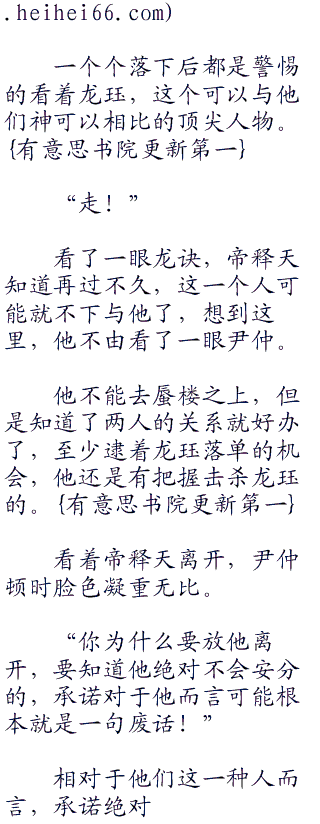 .heihei66.com)
一个个落下后都是警惕
的看着龙珏，这个可以与他
们神可以相比的顶尖人物。
{有意思书院更新第一}
“走！”
看了一眼龙诀，帝释天
知道再过不久，这一个人可
能就不下与他了，想到这
里，他不由看了一眼尹仲。
他不能去蜃楼之上，但
是知道了两人的关系就好办
了，至少逮着龙珏落单的机
会，他还是有把握击杀龙珏
的。{有意思书院更新第一}
看着帝释天离开，尹仲
顿时脸色凝重无比。
“你为什么要放他离
开，要知道他绝对不会安分
的，承诺对于他而言可能根
本就是一句废话！”
相对于他们这一种人而
言，承诺绝对